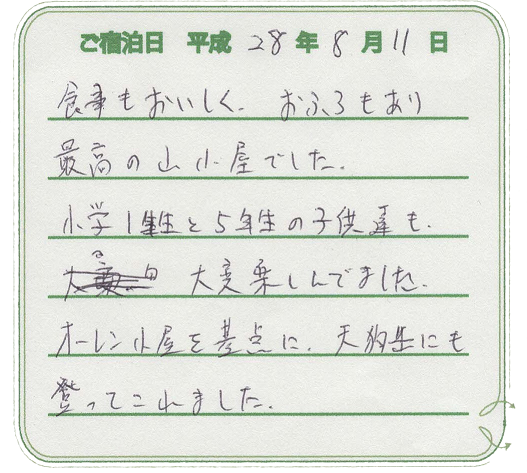 ご宿泊日 平成 28 年 8 月 11 日
食事もおいしく、おふろもあり
最高の山小屋でした。
小学1年生と5年生の子供達も、
大変楽しんでました。
オーレン小屋を基点に、天狗岳にも
登ってこれました。